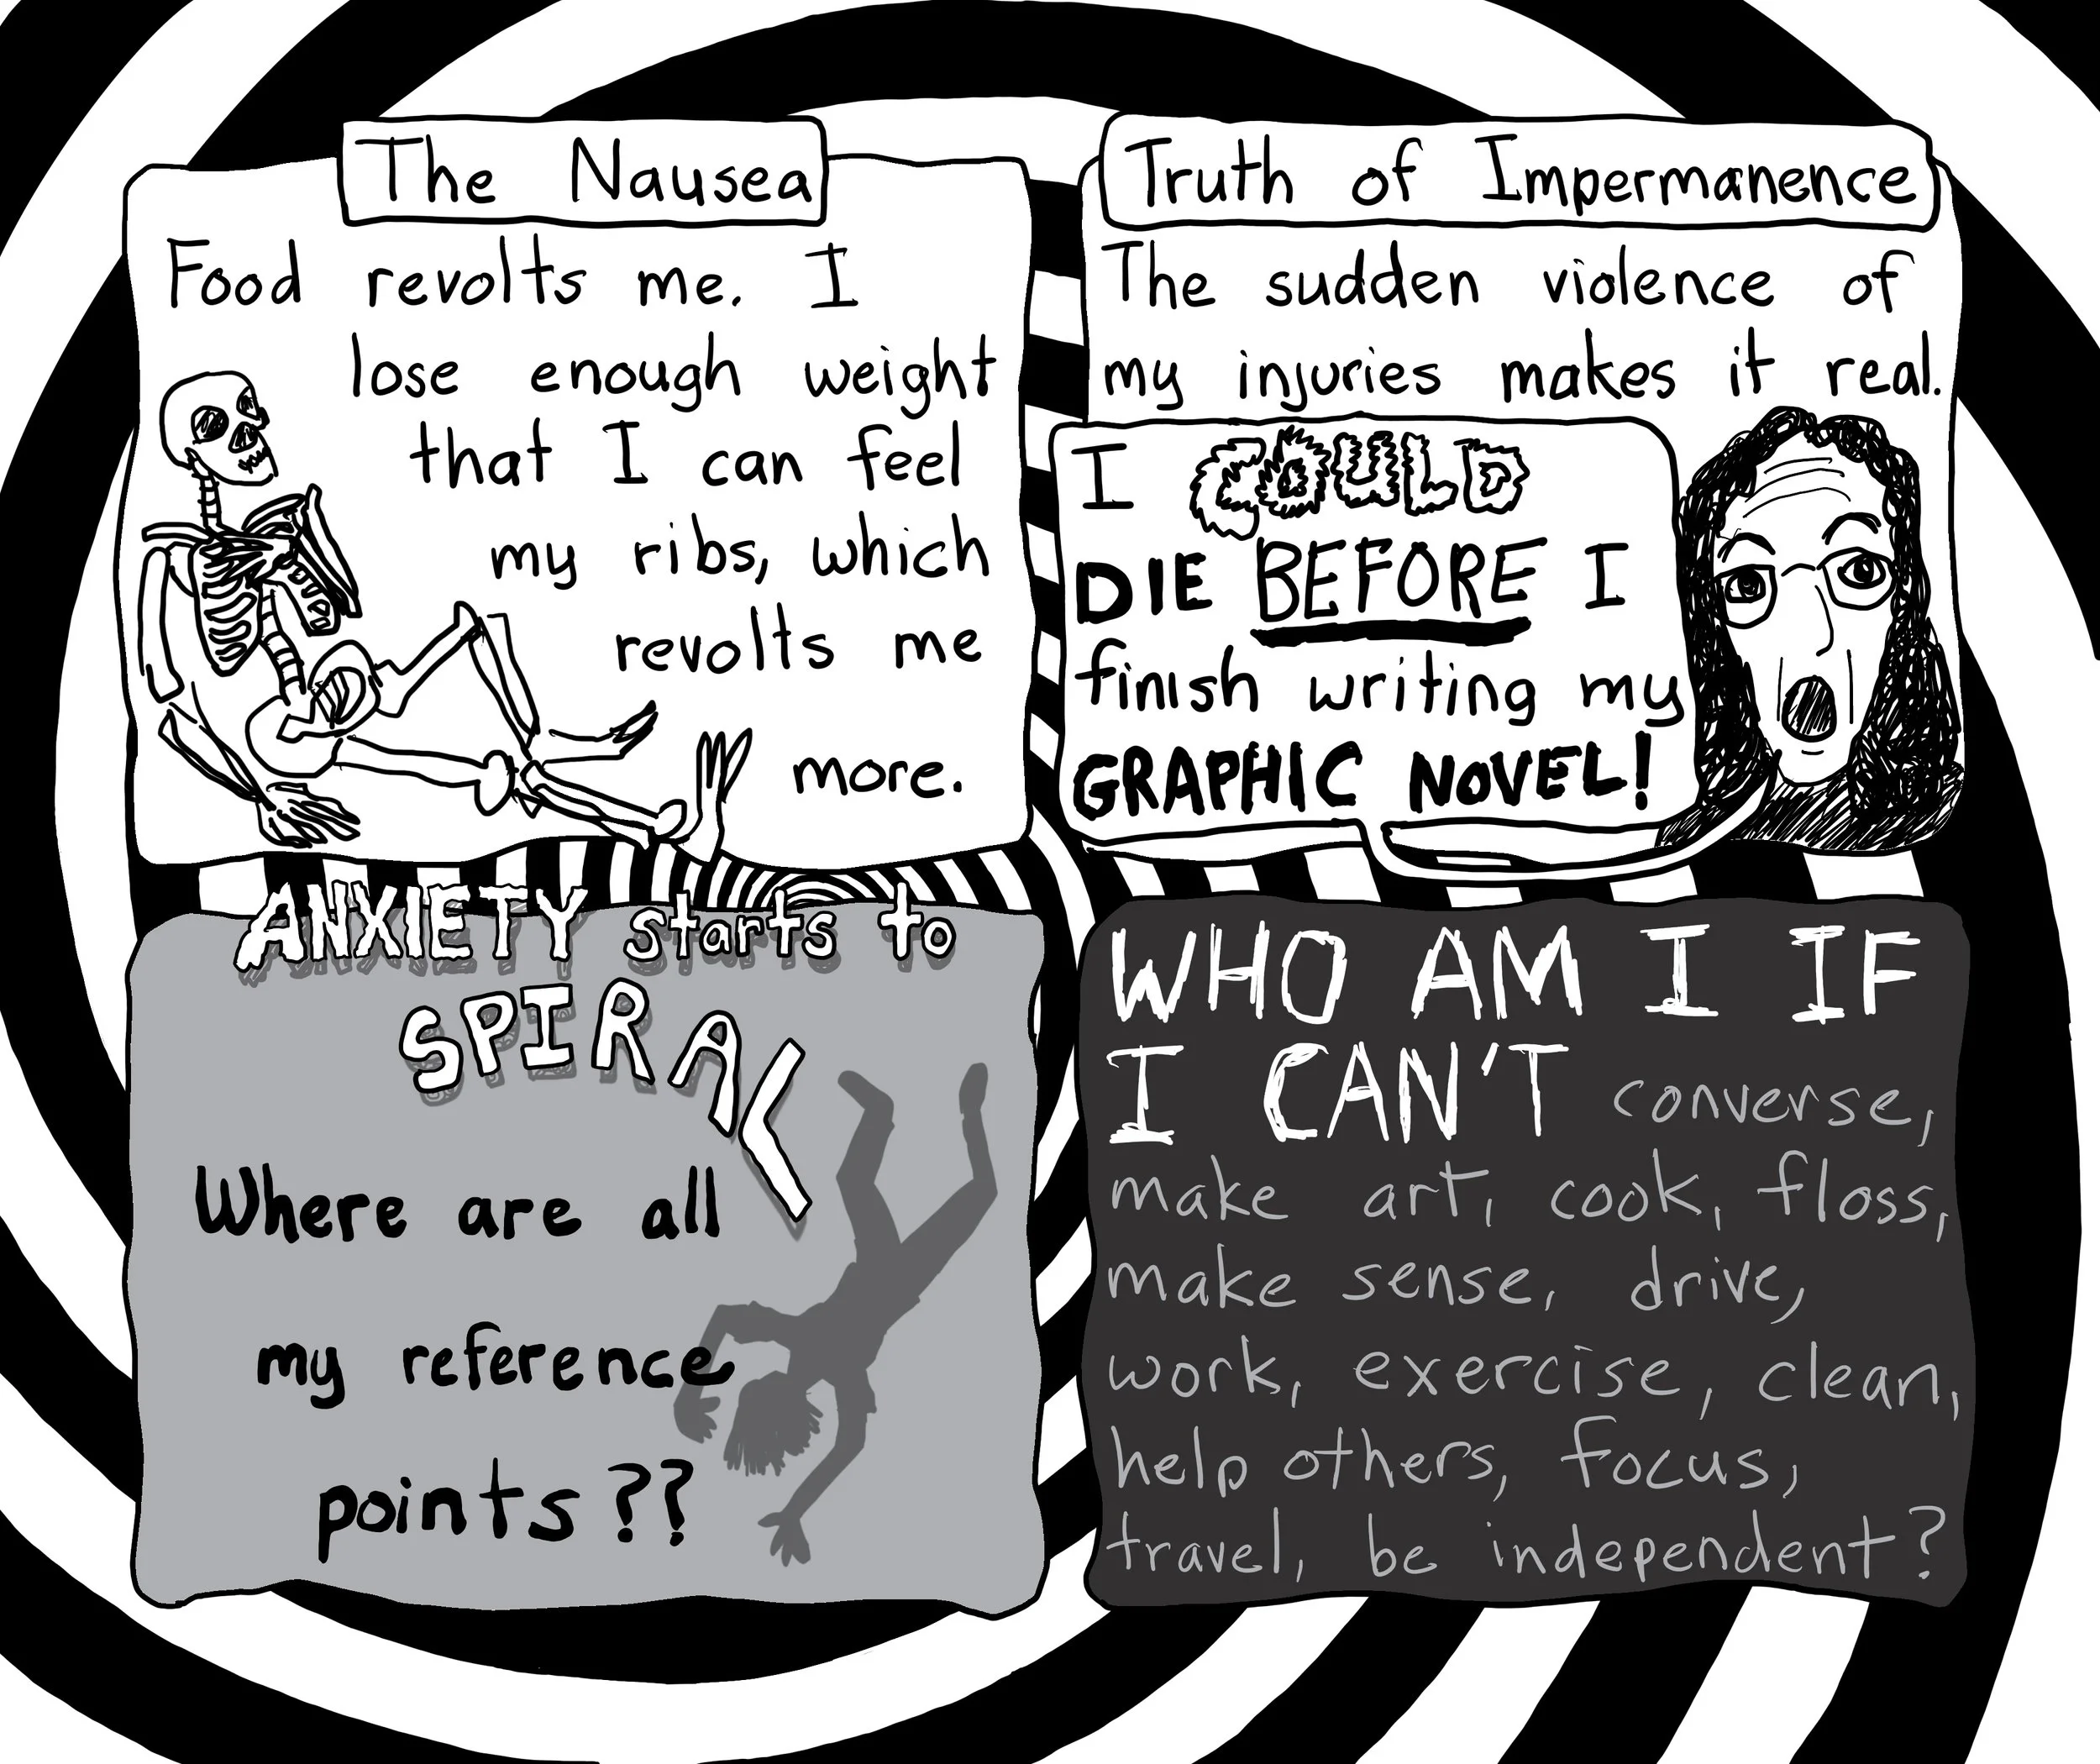 The Nausea
Food revolts me. I
lose enough weight
that I can feel
my ribs, which
revolts me
more.
Truth of Impermanence
The sudden violence of
my injuries makes it real.
I COULD
DIE BEFORE I
finish writing my
GRAPHIC NOVEL!
ANXIETY starts to
SPIRAL
Where are all
my reference
points??
WHO AM I IF
I CAN'T converse,
make art, cook, floss,
make sense, drive,
work, exercise, clean,
help others, focus,
travel, be independent?